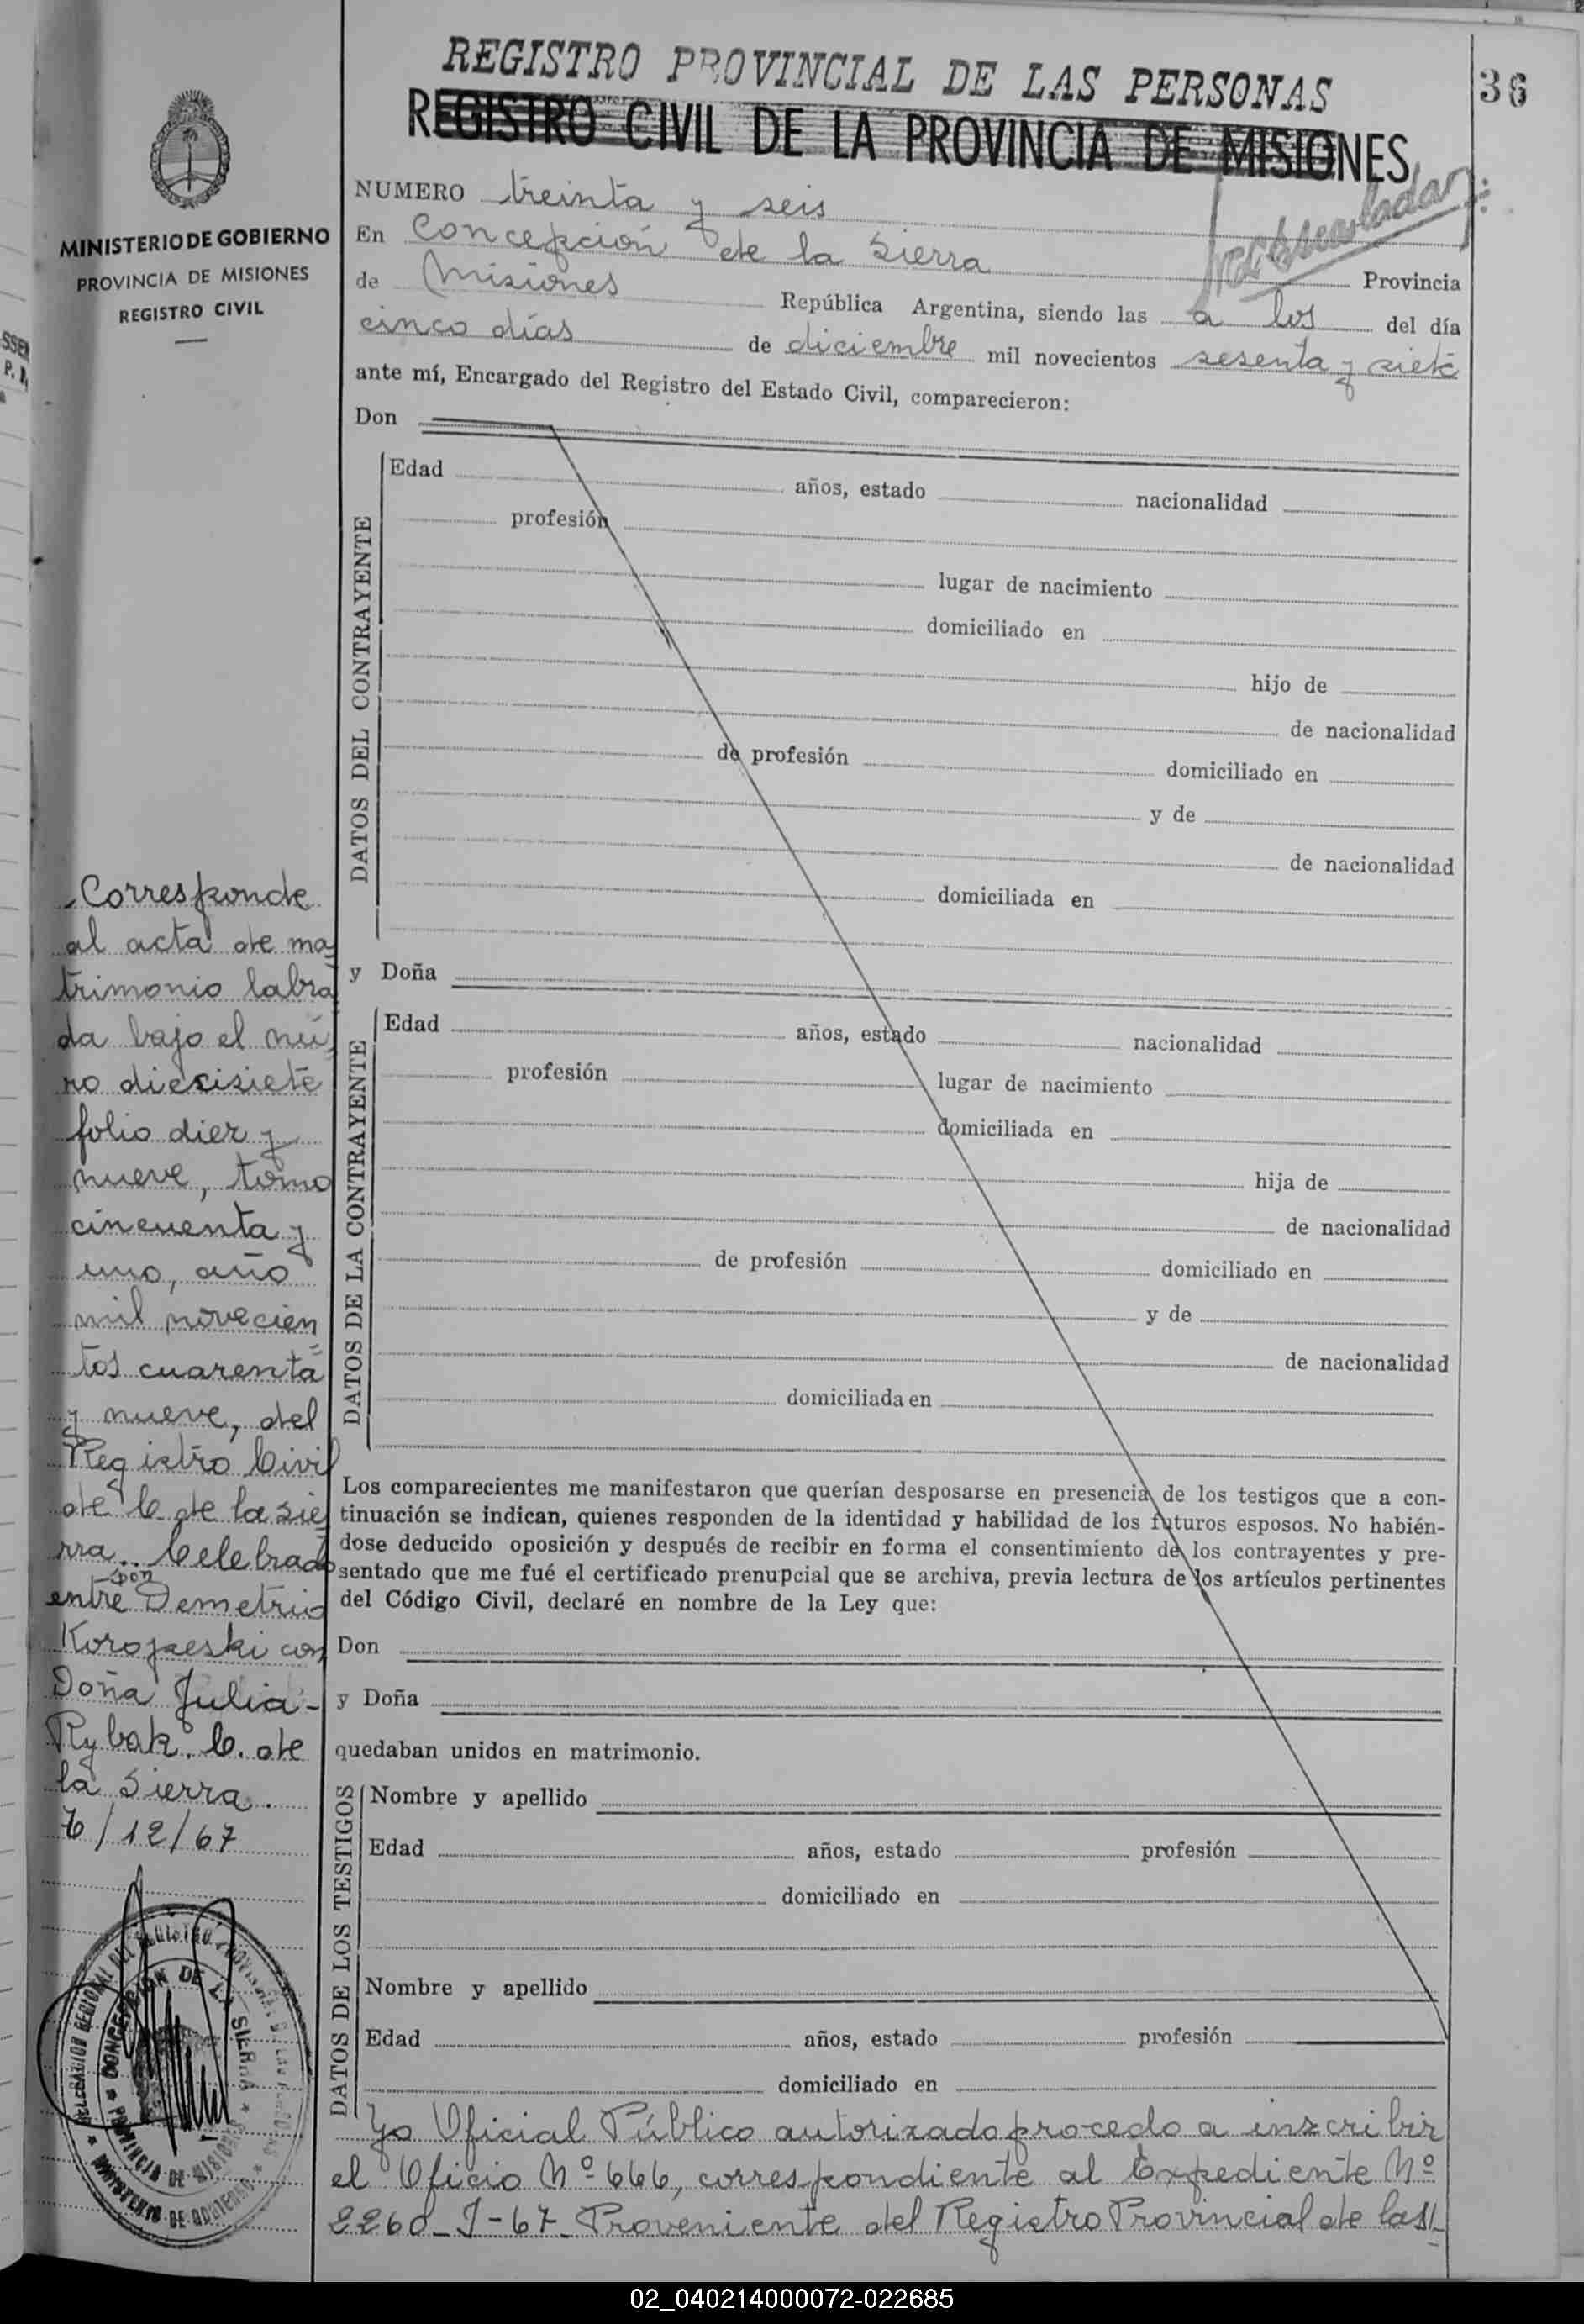 REGISTRO PROVINCIAL DE LAS PERSONAS
REGISTRO CIVIL DE LA PROVINCIA DE MISIONES
36
MINISTERIO DE GOBIERNO
PROVINCIA DE MISIONES
REGISTRO CIVIL
NUMERO treinta y seis
En Concepción de la Sierra
Provincia
de Misiones República Argentina, siendo las a los del día
cinco días de diciembre mil novecientos sesenta y siete
ante mí, Encargado del Registro del Estado Civil, comparecieron:
Don
DATOS DEL CONTRAYENTE
Edad años, estado nacionalidad
profesión
lugar de nacimiento
domiciliado en
hijo de
de nacionalidad
de profesión domiciliado en
y de
de nacionalidad
domiciliada en
y Doña
DATOS DE LA CONTRAYENTE
Edad años, estado nacionalidad
profesión lugar de nacimiento
domiciliada en
hija de
de nacionalidad
de profesión domiciliado en
y de
de nacionalidad
domiciliada en
Los comparecientes me manifestaron que querían desposarse en presencia de los testigos que a con-
tinuación se indican, quienes responden de la identidad y habilidad de los futuros esposos. No habién-
dose deducido oposición y después de recibir en forma el consentimiento de los contrayentes y pre-
sentado que me fué el certificado prenupcial que se archiva, previa lectura de los artículos pertinentes
del Código Civil, declaré en nombre de la Ley que:
Don
y Doña
quedaban unidos en matrimonio.
DATOS DE LOS TESTIGOS
Nombre y apellido
Edad años, estado profesión
domiciliado en
Nombre y apellido
Edad años, estado profesión
domiciliado en
Yo Oficial Público autorizado procedo a inscribir
el Oficio Nº 666, correspondiente al Expediente Nº
2260-J-67. Proveniente del Registro Provincial de las//
Corresponde
al acta de ma
trimonio labra
da bajo el nú
ro diecisiete
folio diez y
nueve, tomo
cincuenta y
uno, año
mil novecien=
tos cuarenta
y nueve, del
Registro Civil
de C. de la Sie
rra. Celebrado
entre don Demetrio
Korojzeski con
Doña Julia-
Rybak. C. de
la Sierra.
6/12/67
DELEGACION REGIONAL DEL REGISTRO PROVINCIAL DE LAS PERSONAS
CONCEPCION DE LA SIERRA
PROVINCIA DE MISIONES
MINISTERIO DE GOBIERNO
02_040214000072-022685